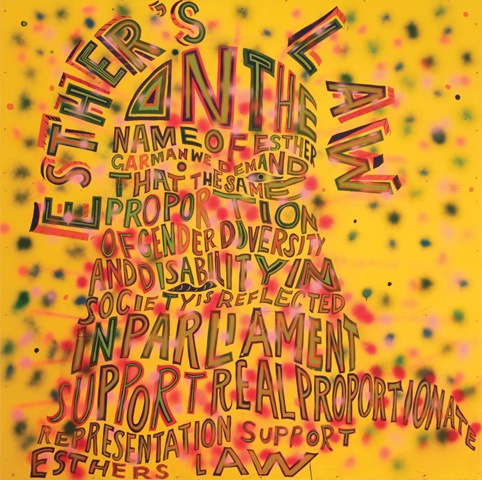 ESTHER'S LAW
ON THE
NAME OF ESTHER
GARMAN WE DEMAND
THAT THE SAME
PROPORTION
OF GENDER DIVERSITY
AND DISABILITY IN
SOCIETY IS REFLECTED
IN PARLIAMENT
SUPPORT REAL PROPORTIONATE
REPRESENTATION SUPPORT
ESTHERS LAW